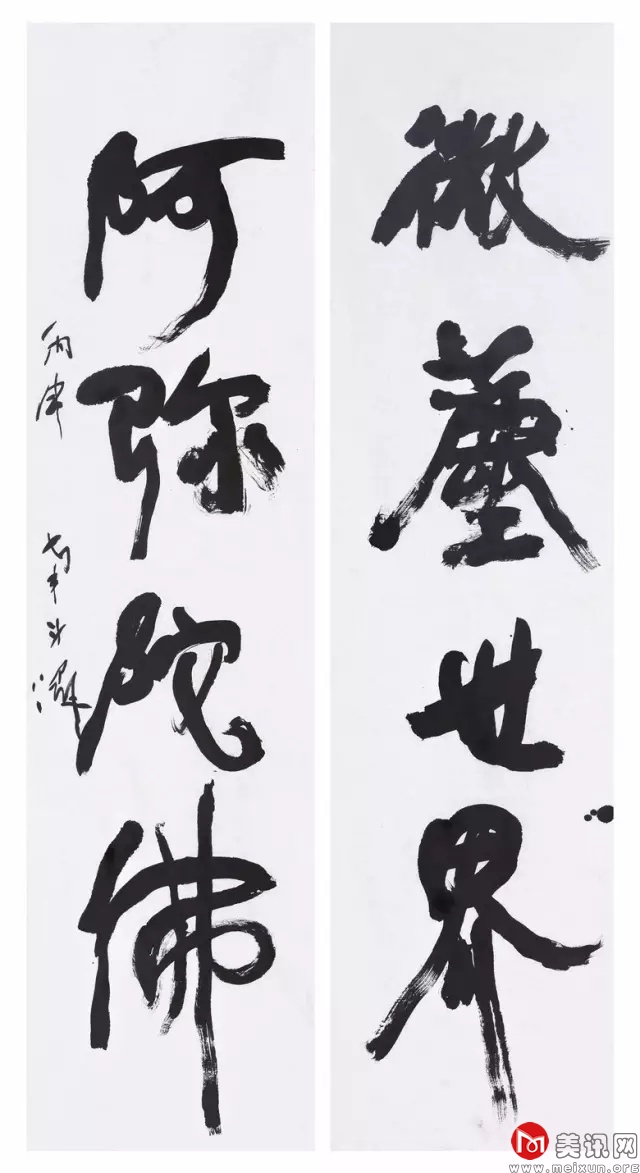 微塵世界
阿弥陀佛
丙申
美讯网
www.meixun.org